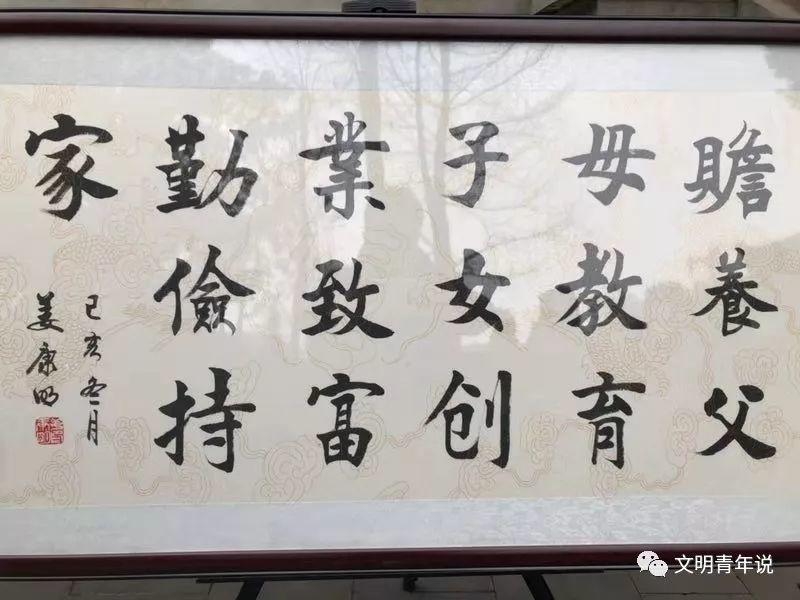 贍養父
母教育
子女创
業致富
勤儉持
家
己亥冬月
姜康明
文明青年说